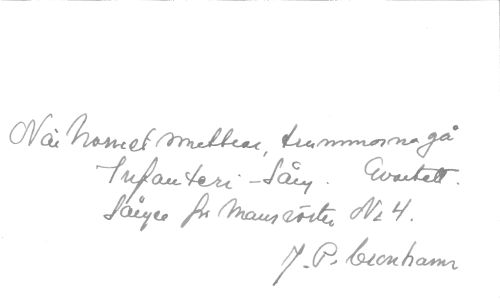 När hornet smattrar, trummorna gå
Infanteri-Sång. Qvartett.
Sånger för Mansröster No 4.
J. P. Cronhamn